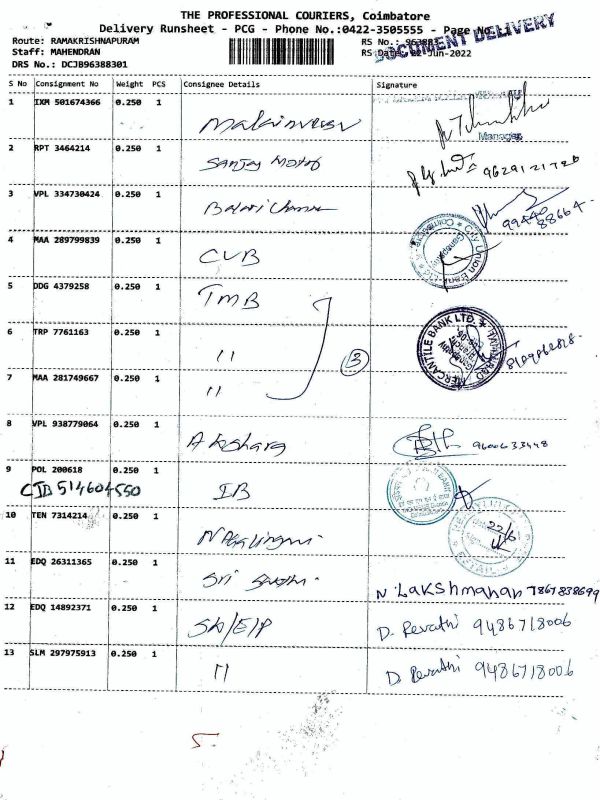 THE PROFESSIONAL COURIERS, Coimbatore
Delivery Runsheet - PCG - Phone No.:0422-3505555 - Page No.:
DOCUMENT DELIVERY
Route: RAMAKRISHNAPURAM
Staff: MAHENDRAN
DRS No.: DCJB96388301
RS No.: 963883
RS Date: 22-Jun-2022
S No Consignment No Weight PCS Consignee Details Signature
1 IXM 501674366 0.250 1
Manager
2 RPT 3464214 0.250 1 Sanjay Motor 9629121720
3 VPL 334730424 0.250 1 Balaji 99440 88664
4 MAA 289799839 0.250 1 CUB
City Union Bank
5 DDG 4379258 0.250 1 TMB
6 TRP 7761163 0.250 1 "
3
MERCANTILE BANK LTD.
7 MAA 281749667 0.250 1 "
8 VPL 938779064 0.250 1 Akshara 9600633448
9 POL 200618 0.250 1 IB
CJB 514604550
10 TEN 7314214 0.250 1
22/6
11 EDQ 26311365 0.250 1 Sri
N. Lakshmanan 7867838699
12 EDQ 14892371 0.250 1 SW/EIP D. Revathi 9486718006
13 SLM 297975913 0.250 1 " D. Revathi 9486718006
5